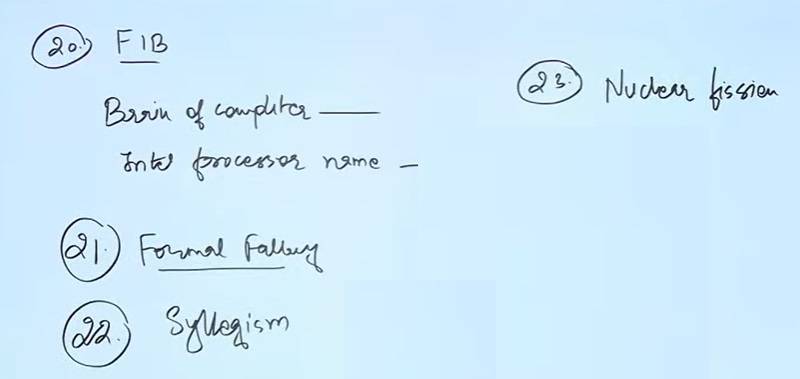 20. FIB
Brain of computer ——
Intel processor name —
21. Formal Fallacy
22. Syllogism
23. Nuclear fission